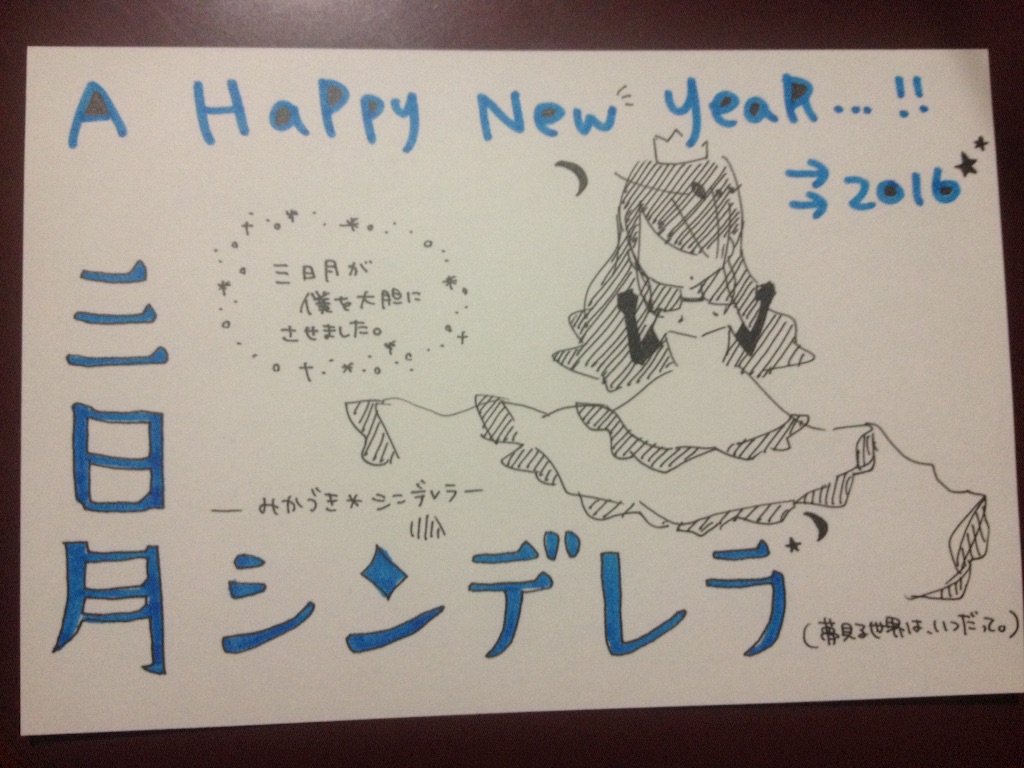 A HaPPy New yeaR...!!
→→2016
三日月が
僕を大胆に
させました。
三日月シンデレラ
ーみかづき*シンデレラー
(夢見る世界は、いつだって。)